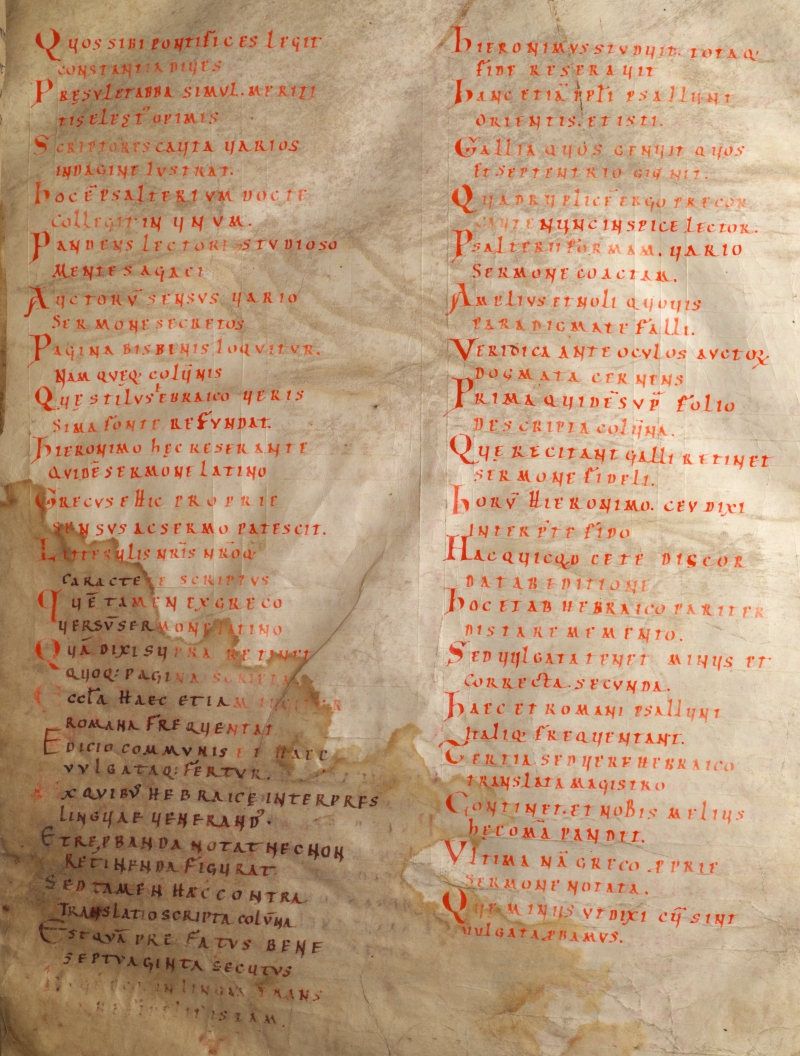 QUOS SIBI PONTIFICES LEGIT
CONSTANTIA DIUES
PRESULETABBA SIMUL. MERITI
TIS ELEGT OPIMIS
SCRIPTORES CAUTA UARIOS
INDAGINE LUSTRAT.
HOC E PSALTERIUM DOCTE
COLLEGIT IN UNUM.
PANDENS LECTORI STUDIOSO
MENTE SAGACI
AUCTORU SENSUS UARIO
SERMONE SECRETOS
PAGINA BISBINIS LOQUITUR.
NAM QUEQ; COLUNIS
QUE STILUS EBRAICO UERIS
SIMA FONTE REFUNDAT.
HIERONIMO HEC RESERANTE
QUIDE SERMONE LATINO
GRECUS E HIC PROPRIE
SENSUS AC SERMO PATESCIT.
NRIS
CARACTERE SCRIPTUS
QUE TAMEN EX GRECO
UERSU SERMONE LATINO
QUA DIXI SUPRA RETINET
QUOQ; PAGINA SCRIPTA
CCTA HAEC ETIAM
ROMANA FREQUENTAT
EDICIO COMMUNIS ET HAEC
VULGATAQ; FERTUR.
X QUIBUS HEBRAICE INTERPRES
LINGUAE UENERAND.
ET REPROBANDA NOTAT NECNON
RETINENDA FIGURAT
SED TAMEN HAEC CONTRA
TRANSLATIO SCRIPTA COLUNA
EST QUA PREFATUS BENE
SEPTUAGINTA SECUTUS
IN LINGUA TRANS
ISTAM.
HIERONIMUS STUDUIT. TOTAQ
FIDE RESERAUIT
HANC ETIA PSALLUNT
ORIENTIS. ET ISTI.
GALLIA QUOS GENUIT QUOS
ET SEPTENTRIO GIGNIT.
QUADRUPLICE ERGO PRECOR
NUNC INSPICE LECTOR.
PSALTERII FORMAM. UARIO
SERMONE COACTAM.
AMPLIUS ET NOLI QUOUIS
PARADIGMATE FALLI.
VERIDICA ANTE OCULOS AUCTOR
DOGMATA CERNENS
PRIMA QUIDE SUP FOLIO
DESCRIPTA COLUNA.
QUE RECITANT GALLI RETINET
SERMONE FIDELI.
HORU HIERONIMO. CEU DIXI
INTERPTE FIDO
HAC QUICQD CETE DISCOR
DAT AB EDITIONE
HOC ET AB HEBRAICO PARITER
DISTARE MEMENTO.
SED UULGATA TENET MINUS ET
CORRECTA. SECUNDA.
HAEC ET ROMANI PSALLUNT
ITALIQ; FREQUENTANT.
TERTIA SED UERE HEBRAICO
TRANSLATA MAGISTRO
CONTINET. ET NOBIS MELIUS
PANDIT.
VLTIMA NA GRECO. PPRIE
SERMONE NOTATA.
QUE MINUS UT DIXI CU SINT
UULGATA. PBAMUS.